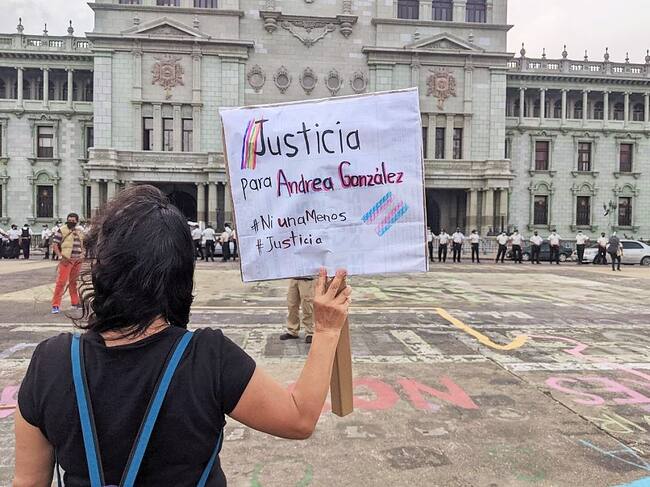 Justicia
para Andrea González
#NiunaMenos
#Justicia
NO
ES